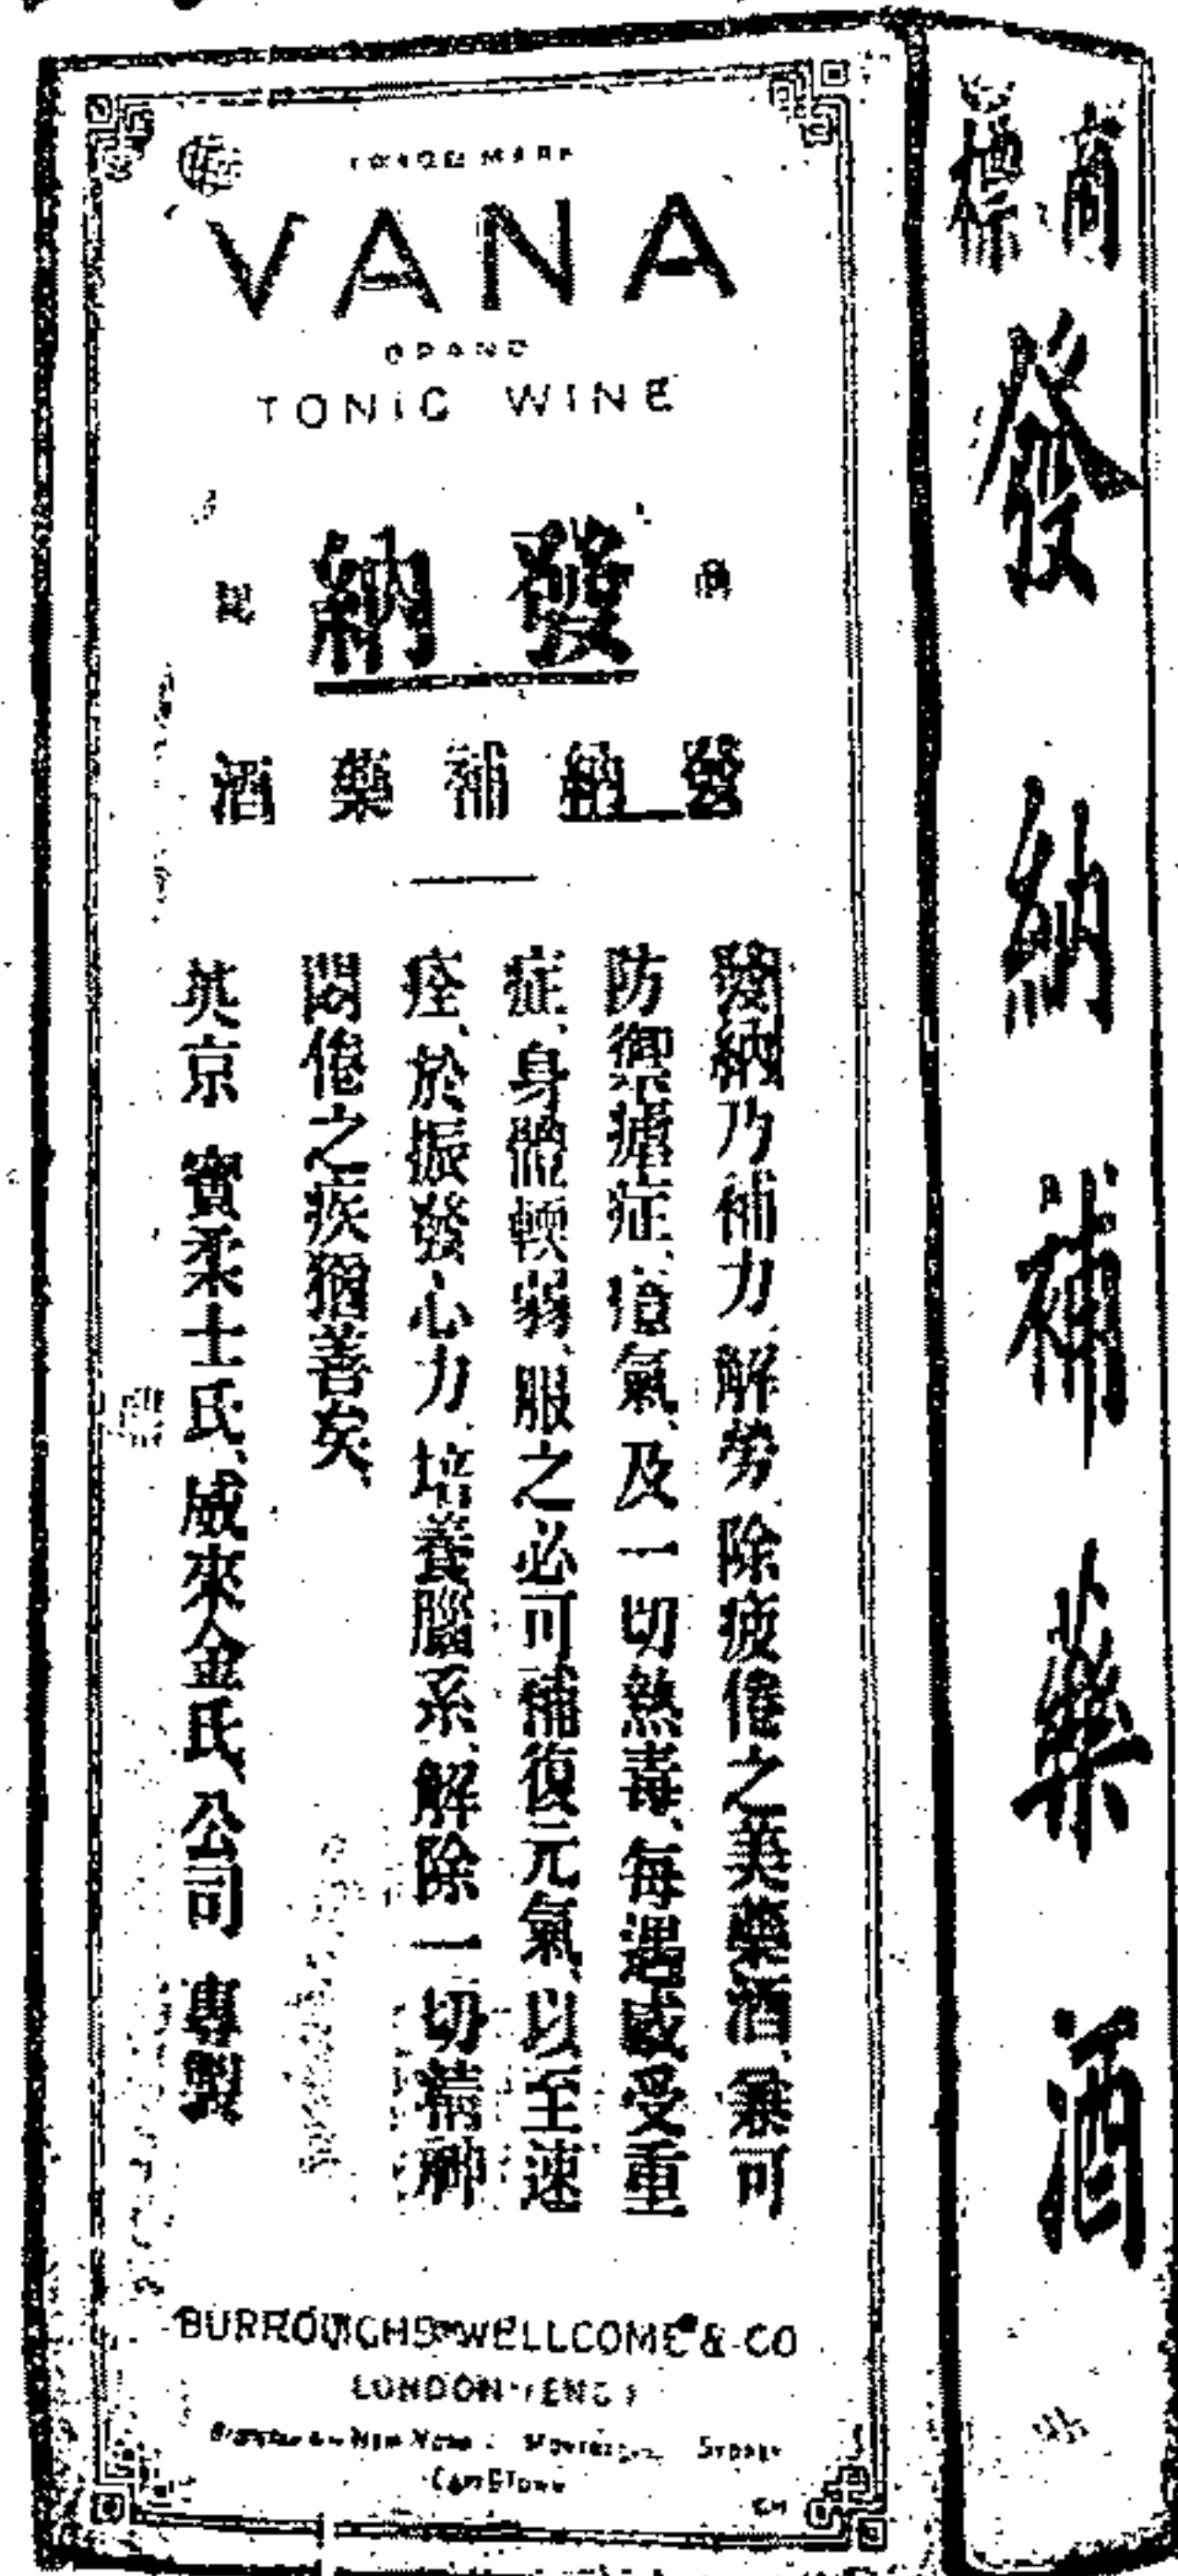 TRADE MARK
VANA
BRAND
TONIC WINE
商 發納 記
發納補藥酒
發納乃補力、解勞、除疲倦之美藥酒、兼可
防禦瘧症、瘴氣、及一切熱毒、每遇感受重
症、身體輭弱、服之必可補復元氣、以至速
痊、於振發心力、培養腦系、解除一切精神
悶倦之疾猶善矣、
英京 寳柔士氏、威來金氏、公司 專製
BURROUGHS WELLCOME & CO
LONDON (ENG.)
Branches New York Montreal Sydney
Cape Town
商標
發納補藥酒